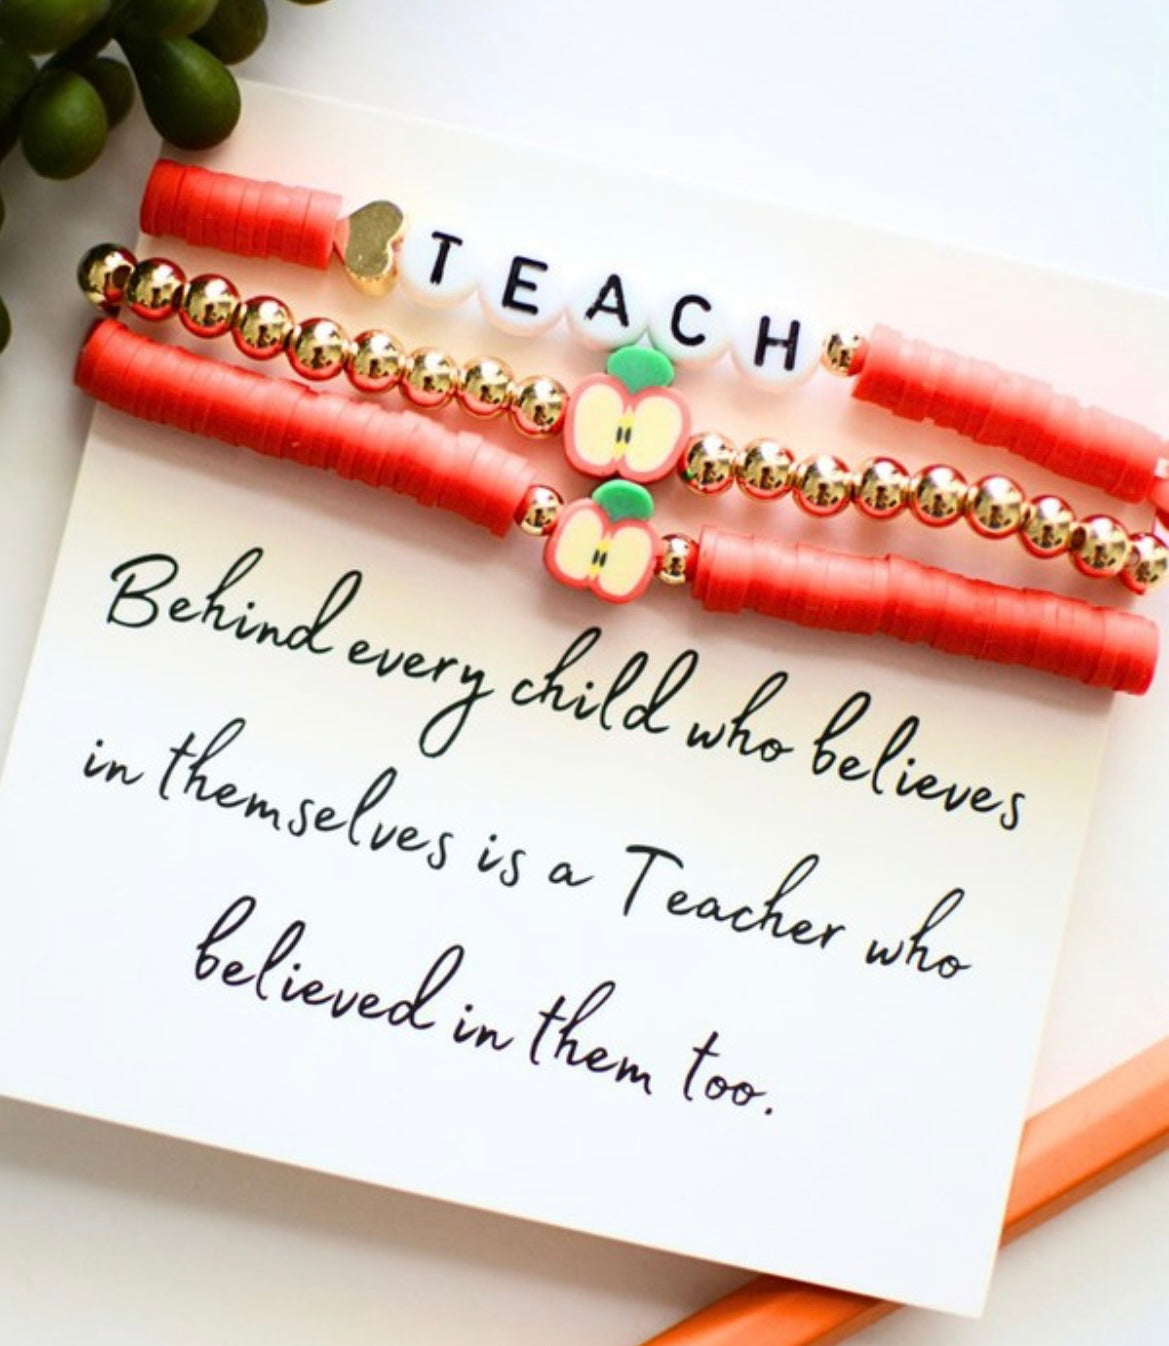 TEACH
Behind every child who believes
in themselves is a Teacher who
believed in them too.